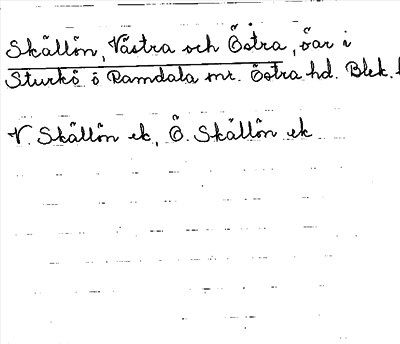 Skällön, Västra och Östra, öar i
Sturkö ö Ramdala snr. Östra hd. Blek.
V. Skällön ek, Ö. Skällön ek